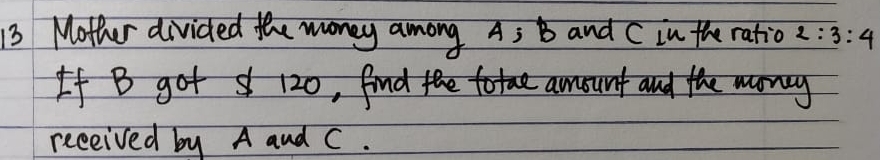 13 Mother divided the money among A ; B and C in the ratio 2:3:4
If B got $ 120, find the total amount and the money
received by A and C.